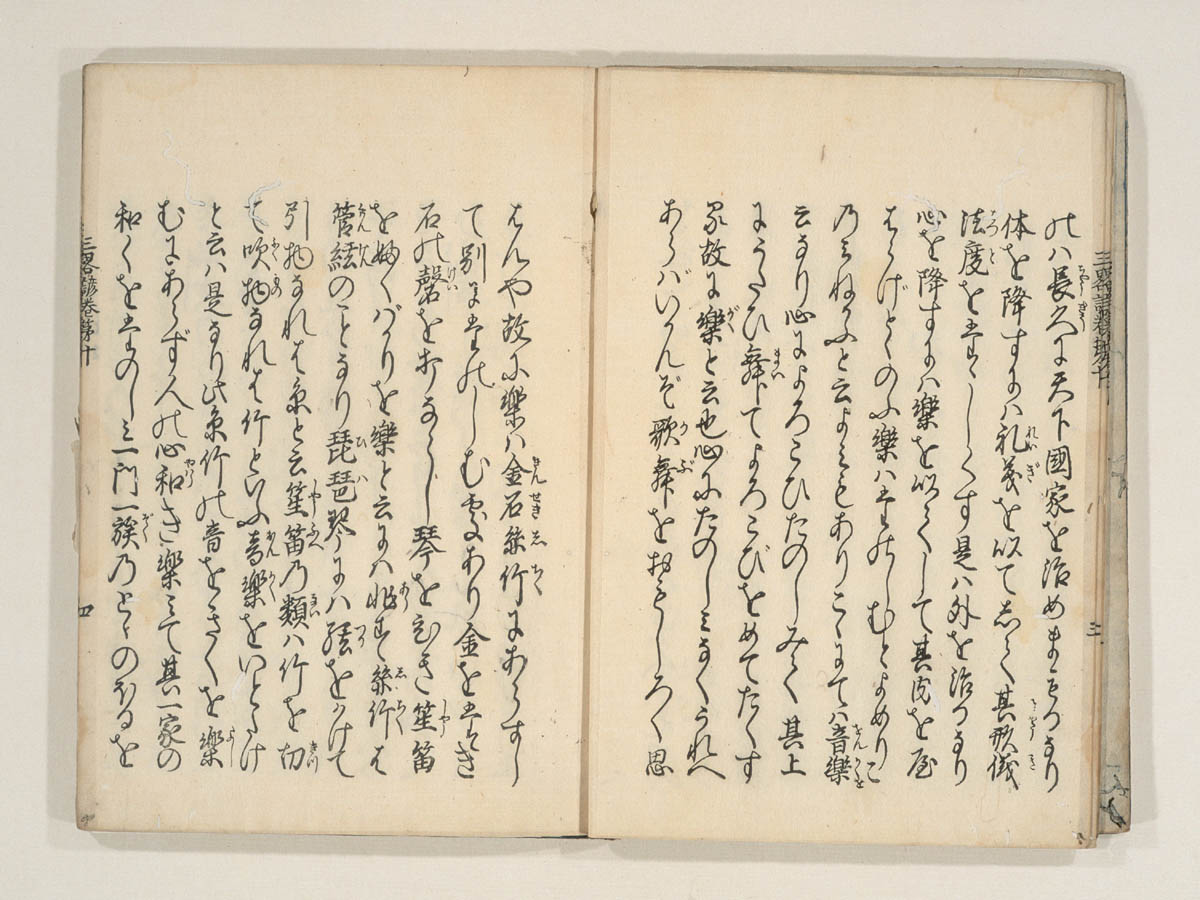 のハ長久に天下國家を治めまもるなり
体を降すにハ礼義を以てして其形儀
法度をたゞしくす是ハ外を治るなり
心を降すにハ樂を以てして其内を
はらげとゝのふ樂ハたのしむとよめりこ
乃みねかふと云よみもありこゝにてハ音樂
云なり心によろこひたのしみて其上
にうたひ舞てよろこびをめてたくす
る故に樂と云也心にたのしみなくうれへ
あらバいかんぞ歌舞をおもしろく思
はんや故に樂ハ金石絲竹にあらずし
て別にたのしむ處あり金をたゝき
石の磬をならし琴をひき笙笛
をふくバかりを樂と云にハ非ず絲竹は
管絃のことなり琵琶琴にハ絃をかけて
引物なれば糸と云笙笛乃類ハ竹を切
て吹物なれば竹といふ音樂をいとたけ
と云ハ是なり此糸竹の音をきくを樂
むにあらず人の心和き樂みて其一家の
和くをたのしミ一門一族乃とゝのほるを
三略諺卷第十
四
三